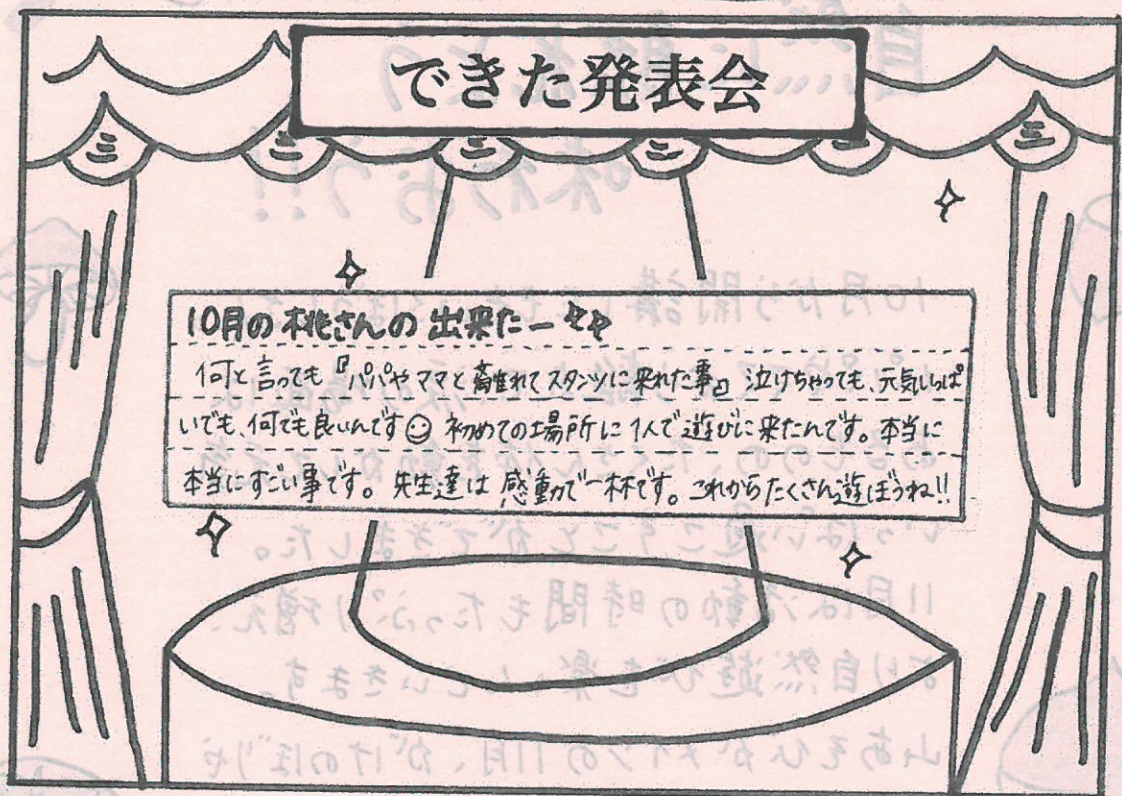 できた発表会
10月の桃さんの出来たー
何と言っても『パパやママと離れてスタンツに来れた事』泣けちゃっても、元気いっぱ
いでも、何でも良いんです☺ 初めての場所に1人で遊びに来たんです。本当に
本当にすごい事です。先生達は感動で一杯です。これからたくさん遊ぼうね!!